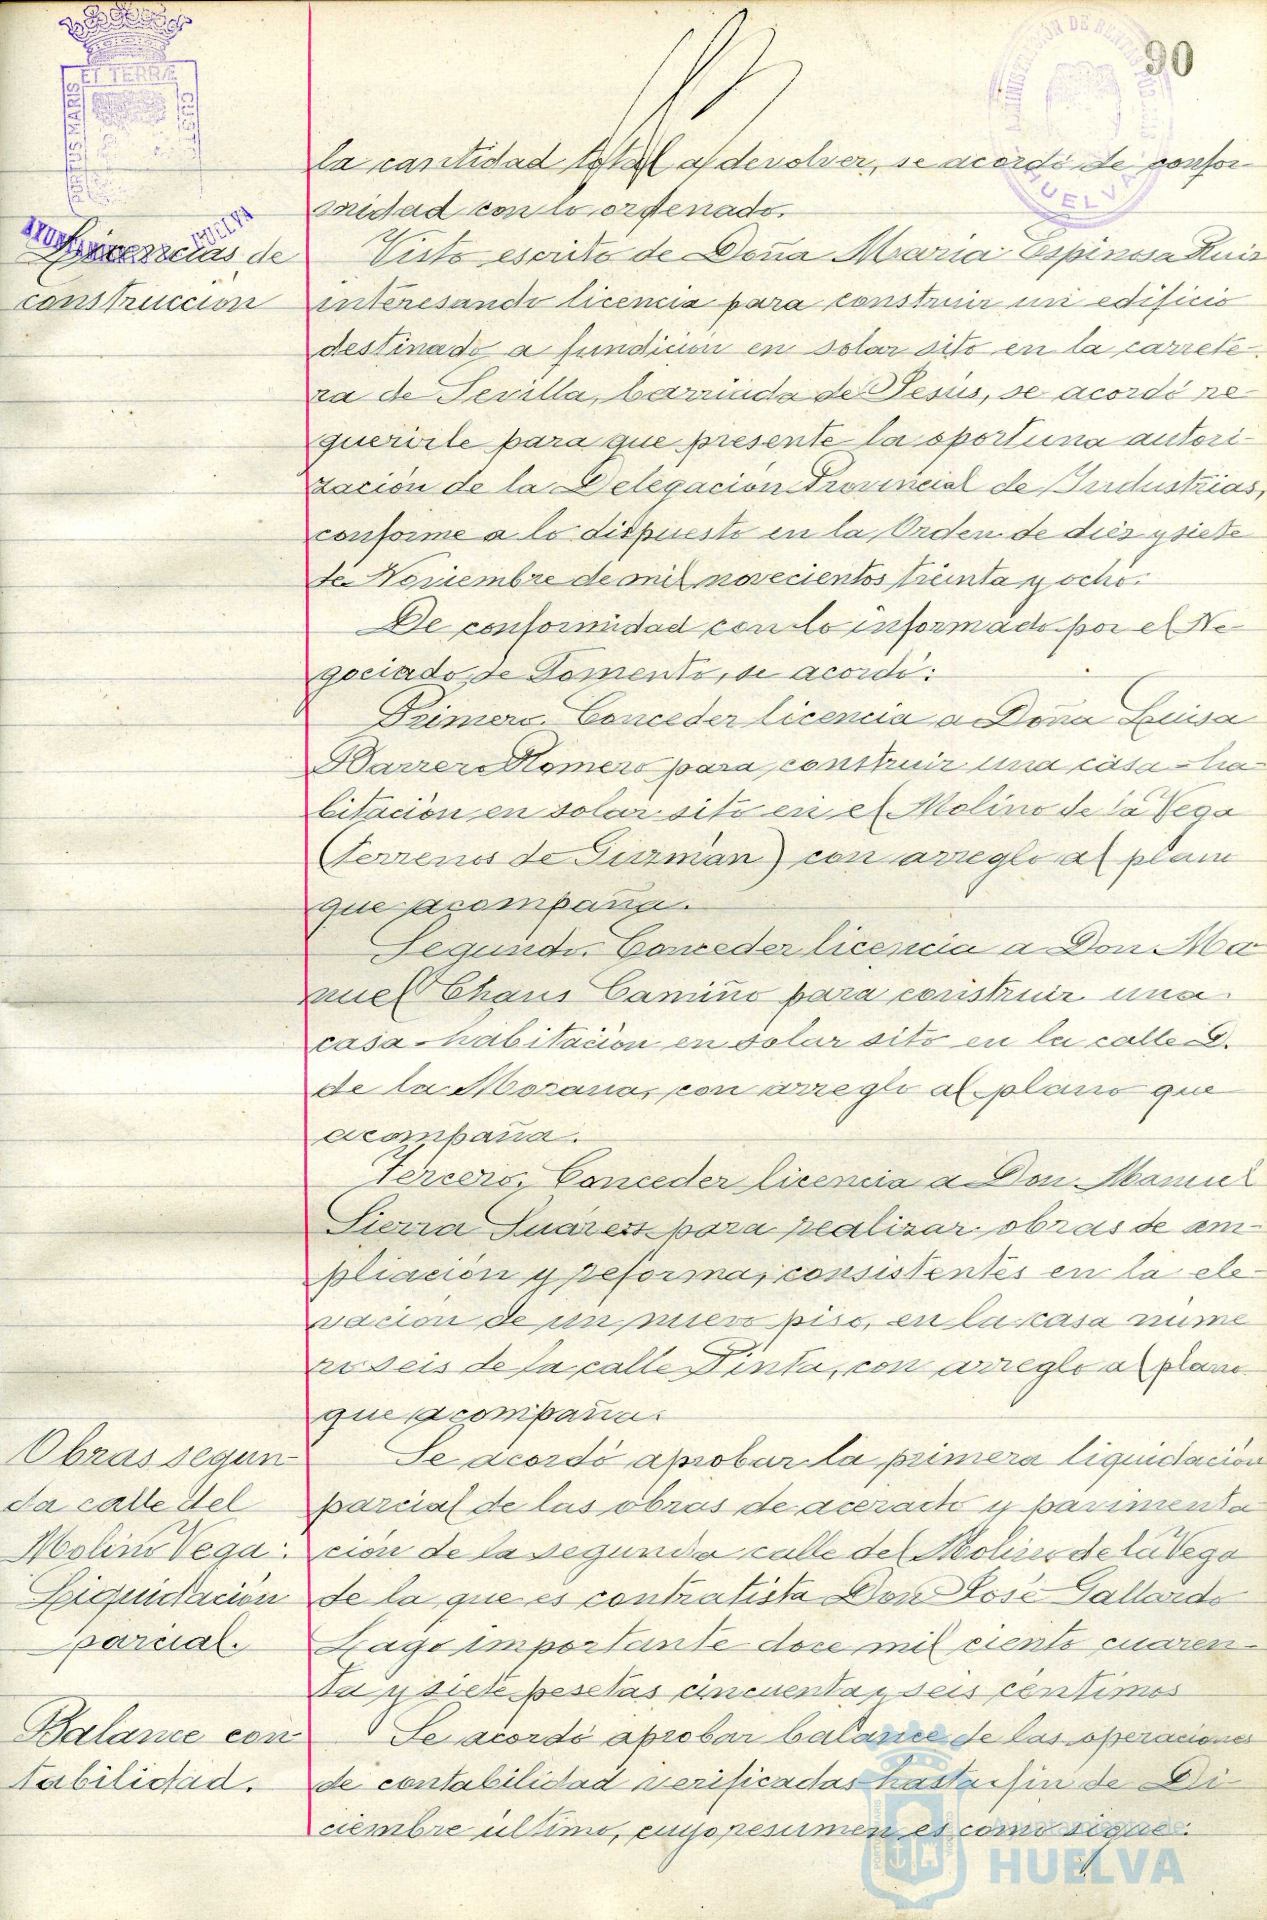 90
ET TERRÆ
PORTUS MARIS
CUST
AYUNTAMIENTO HUELVA
ADMINISTRACIÓN DE RENTAS PÚBLICAS
HUELVA
la cantidad total a devolver, se acordó de confor-
midad con lo ordenado.
Licencias de
construcción
Visto escrito de Doña Maria Espinosa Ruiz
interesando licencia para construir un edificio
destinado a fundición en solar sito en la carrete-
ra de Sevilla, barriada de Jesús, se acordó re-
querirle para que presente la oportuna autori-
zación de la Delegación Provincial de Industrias,
conforme a lo dispuesto en la Orden de diez y siete
de Noviembre de mil novecientos treinta y ocho.
De conformidad con lo informado por el Ne-
gociado de Fomento, se acordó:
Primero. Conceder licencia a Doña Luisa
Barrero Romero para construir una casa-ha-
bitación en solar sito en el Molino de la Vega
(terrenos de Guzmán) con arreglo al plano
que acompaña.
Segundo. Conceder licencia a Don Ma-
nuel Chans Camiño para construir una
casa-habitación en solar sito en la calle D.
de la Morana, con arreglo al plano que
acompaña.
Tercero. Conceder licencia a Don Manuel
Sierra Suárez para realizar obras de am-
pliación y reforma, consistentes en la ele-
vación de un nuevo piso, en la casa núme
ro seis de la calle Pinta, con arreglo al plano
que acompaña.
Obras segun-
da calle del
Molino Vega.
Liquidación
parcial.
Se acordó aprobar la primera liquidación
parcial de las obras de acerado y pavimenta
ción de la segunda calle del Molino de la Vega
de la que es contratista Don José Gallardo
Lago importante doce mil ciento cuaren-
ta y siete pesetas cincuenta y seis céntimos
Balance con-
tabilidad.
Se acordó aprobar balance de las operaciones
de contabilidad verificadas hasta fin de Di-
ciembre último, cuyo resumen es como sigue:
Ayuntamiento de
HUELVA